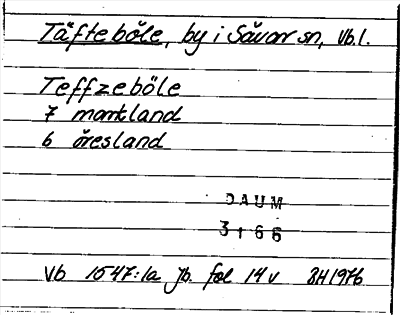 Täfteböle, by i Sävar sn, Vb.l.
Teffzeböle
7 markland
6 öresland
DAUM
3166
Vb 1547:1a Jb. fol 14 v BH 1976